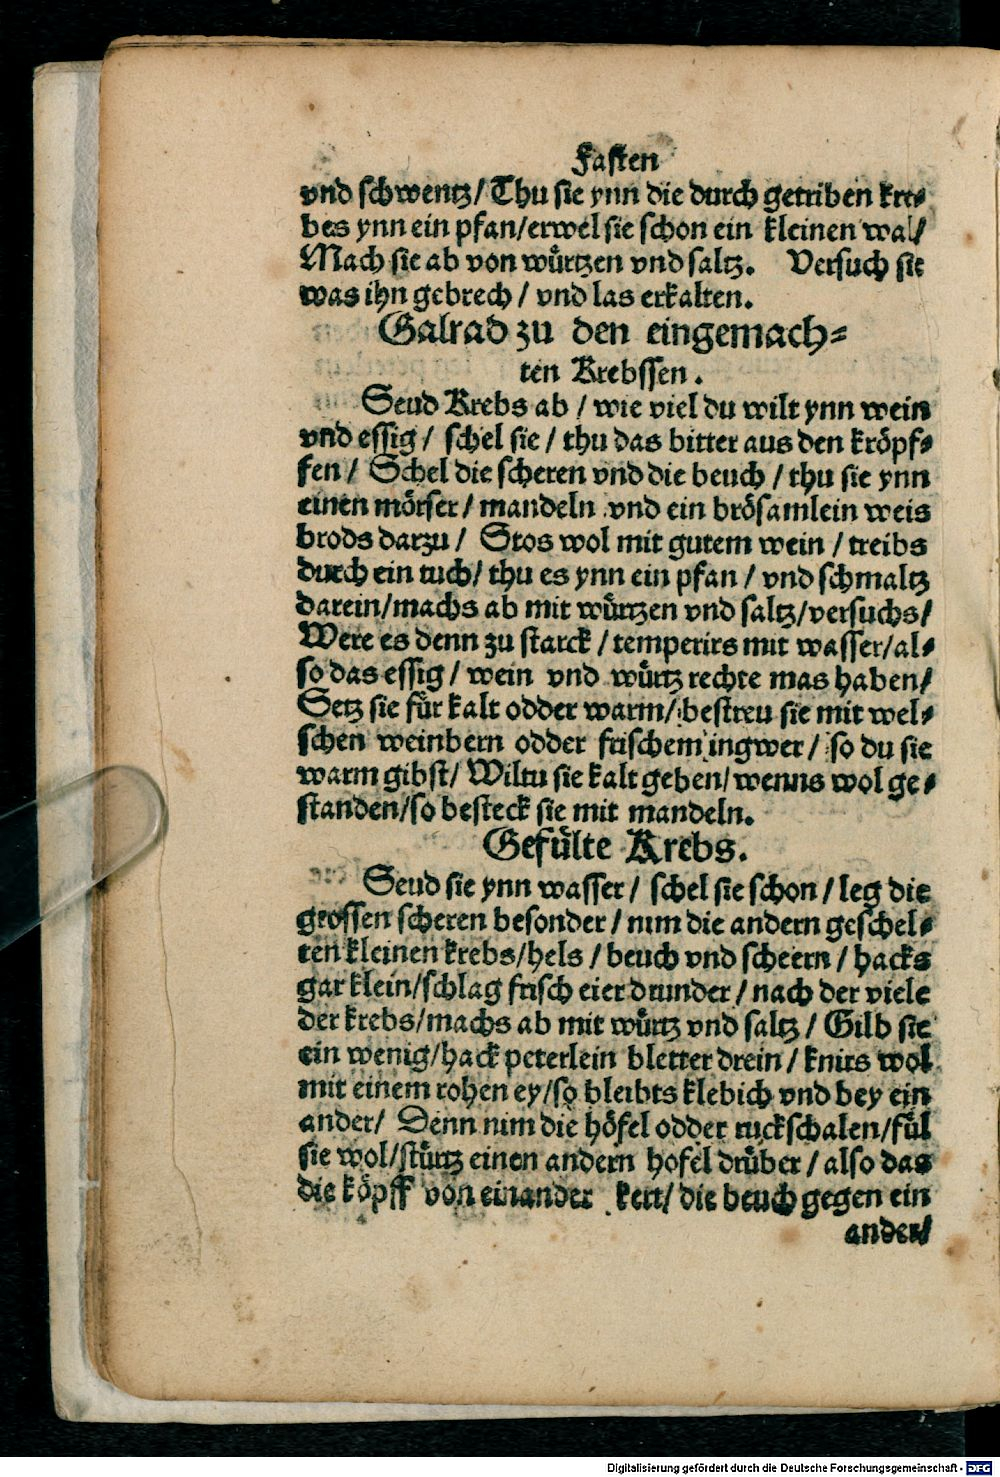 Fasten
vnd schwentz/ Thu sie ynn die durch getriben kre⸗
bes ynn ein pfan/erwel sie schon ein kleinen wal/
Mach sie ab von würtzen vnd saltz. Versuch sie
was ihn gebrech / vnd las erkalten.
Galrad zu den eingemach⸗
ten Krebssen.
Seud Krebs ab / wie viel du wilt ynn wein
vnd essig / schel sie / thu das bitter aus den kröpf⸗
fen / Schel die scheren vnd die beuch / thu sie ynn
einen mörser / mandeln vnd ein brösamlein weis
brods darzu / Stos wol mit gutem wein / treibs
durch ein tuch/ thu es ynn ein pfan / vnd schmaltz
darein/machs ab mit würtzen vnd saltz/versuchs/
Were es denn zu starck / temperirs mit wasser/al⸗
so das essig / wein vnd würtz rechte mas haben/
Setz sie für kalt odder warm/ bestreu sie mit wel⸗
schen weinbern odder frischem ingwer / so du sie
warm gibst/ Wiltu sie kalt geben/ wenns wol ge⸗
standen/so besteck sie mit mandeln.
Gefülte Krebs.
Seud sie ynn wasser / schel sie schon / leg die
grossen scheren besonder / nim die andern geschel⸗
ten kleinen krebs/hels / beuch vnd scheern / hacks
gar klein/schlag frisch eier drunder / nach der viele
der krebs/machs ab mit würtz vnd saltz / Gilb sie
ein wenig/hack peterlein bletter drein / knirs wol
mit einem rohen ey/so bleibts klebich vnd bey ein
ander/ Denn nim die höfel odder ruckschalen/fül
sie wol/stürtz einen andern hofel drüber / also das
die köpff von einander kert/ die beuch gegen ein
ander/
Digitalisierung gefördert durch die Deutsche Forschungsgemeinschaft - DFG